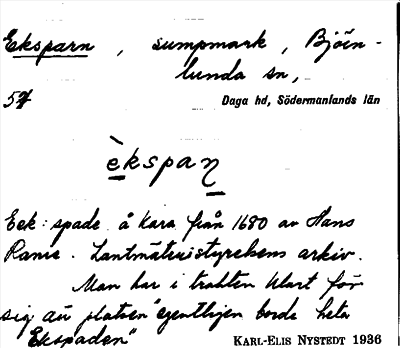 Eksparn, sumpmark, Björn-
lunda sn,
57 Daga hd, Södermanlands län
èkspaṉ
Eek: spade å kara från 1680 av Hans
Ranie. Lantmäteristyrelsens arkiv.
Man har i trakten klart för
sig att platsen "egentligen borde heta
Ekspaden"
KARL-ELIS NYSTEDT 1936